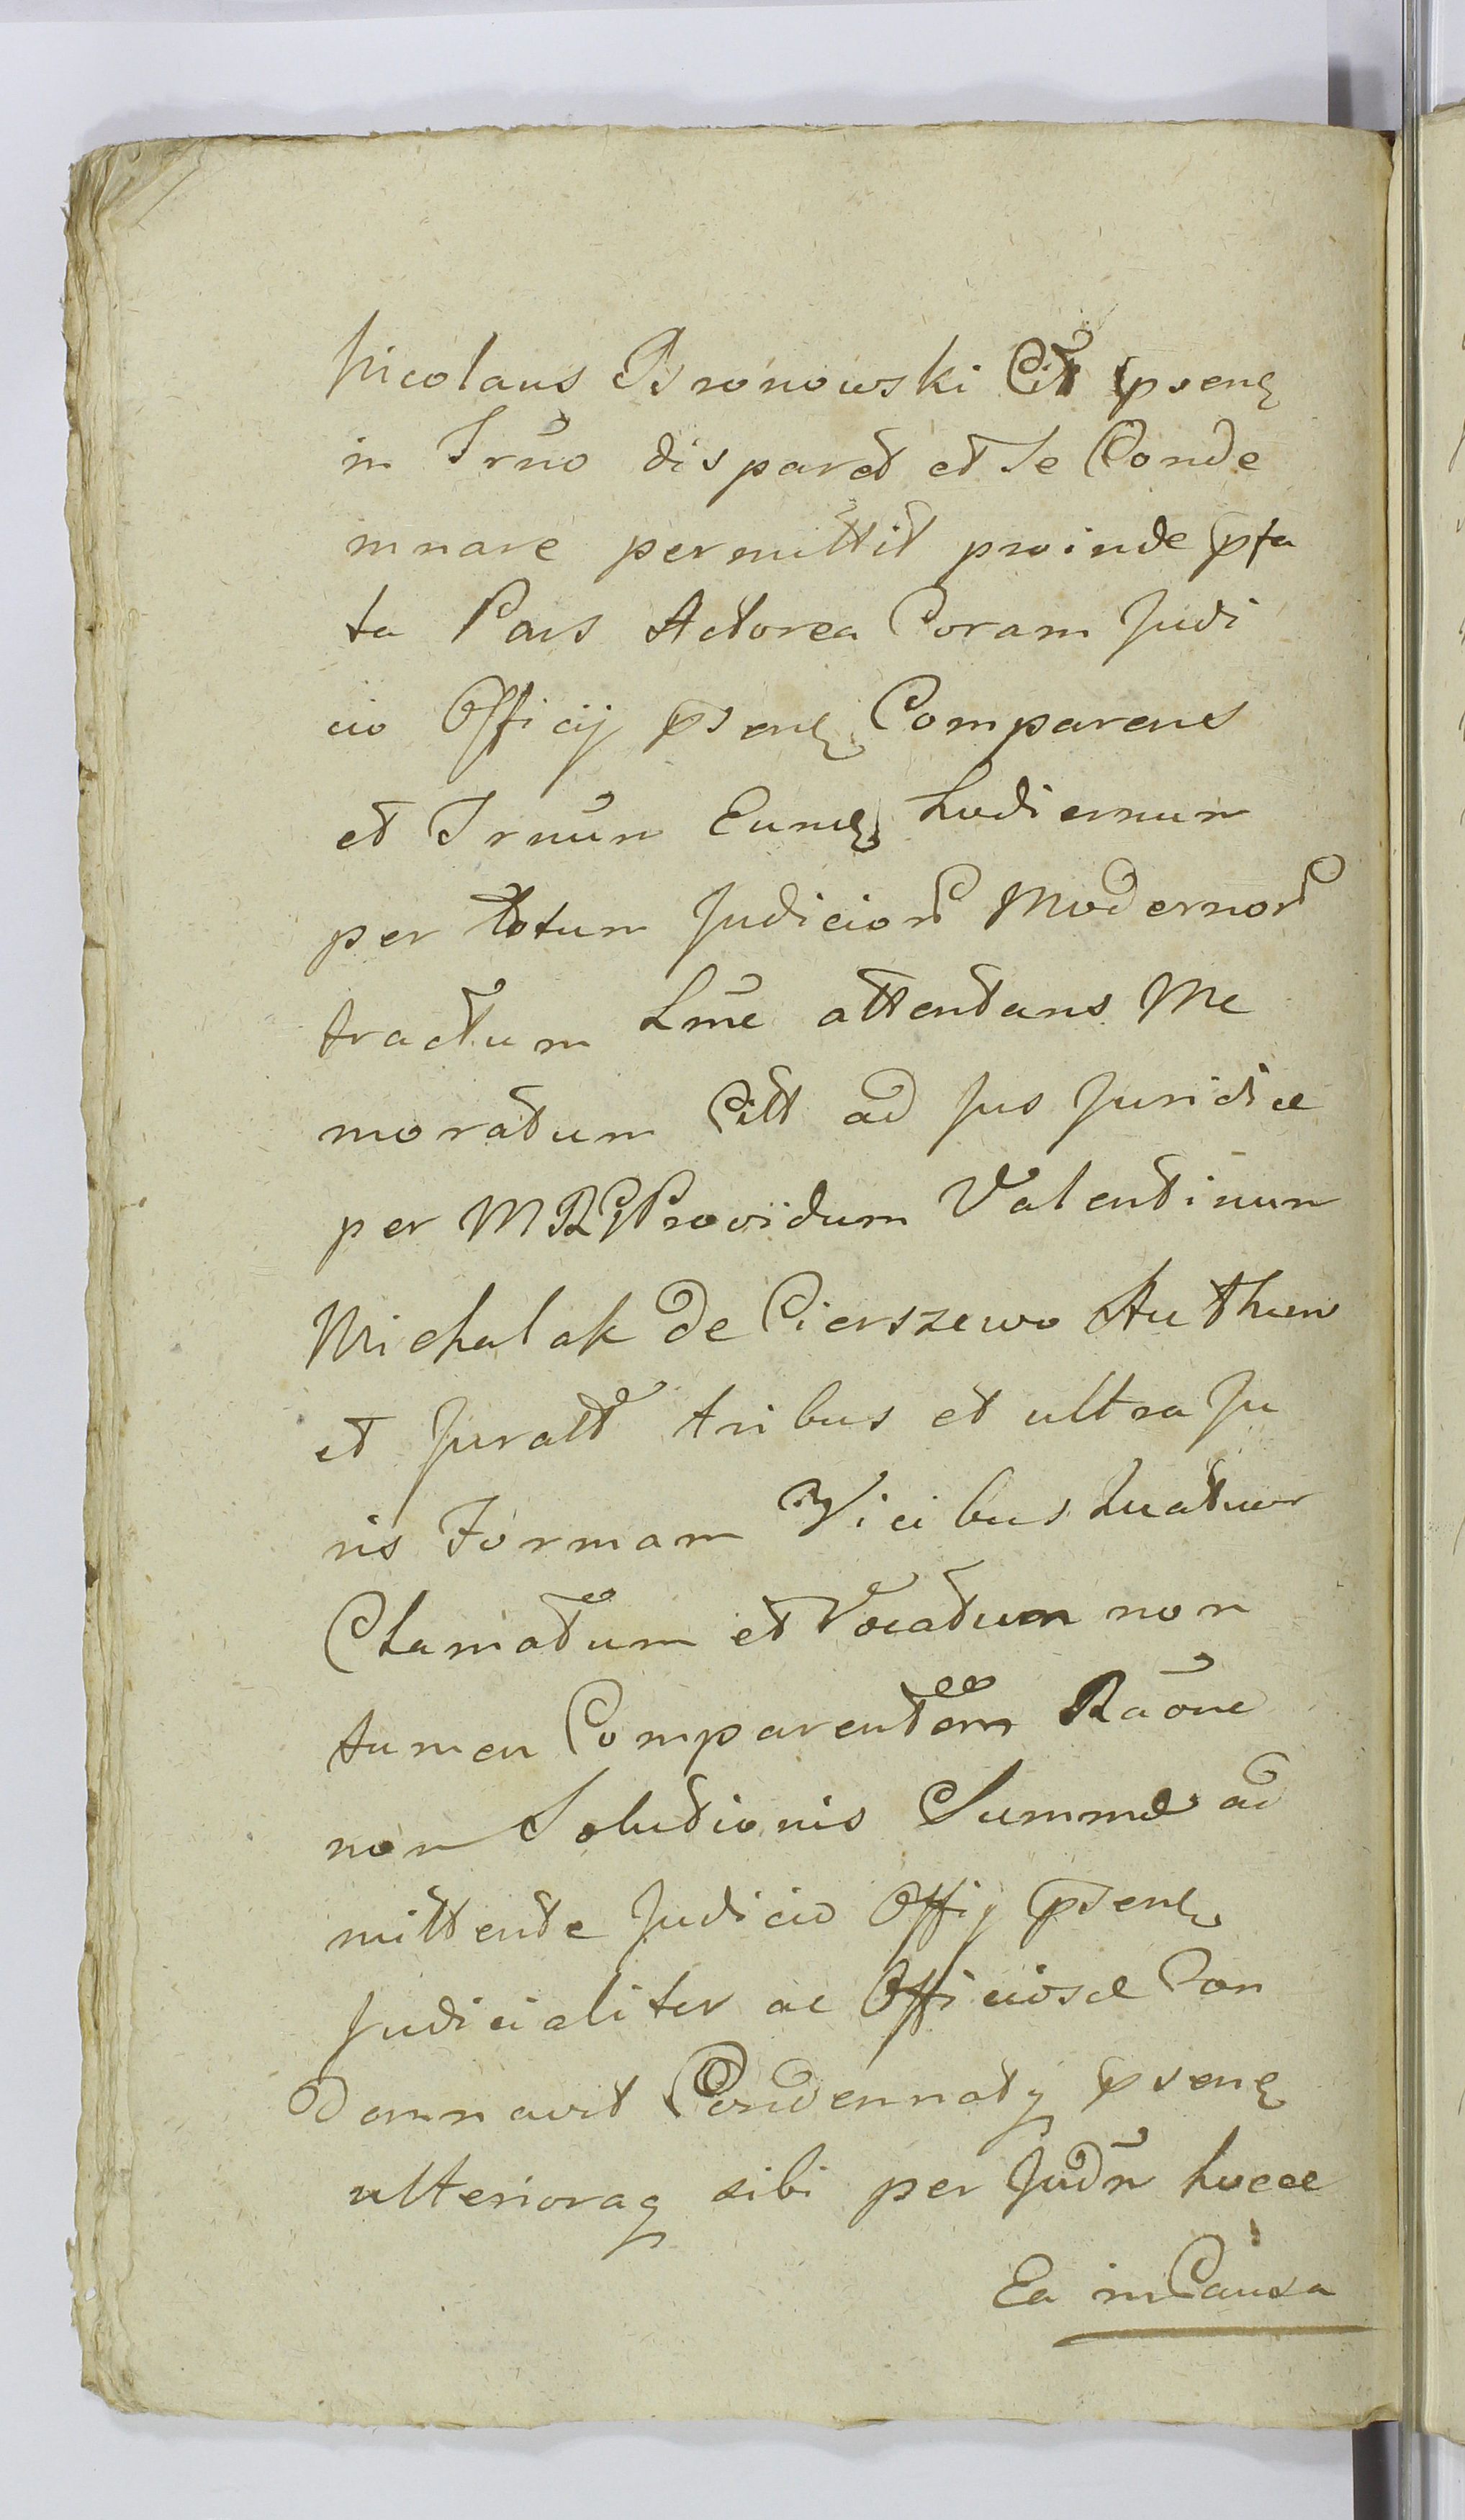 Nicolaus Bronowski Citt psens
in Trno disparet et se Conde
mnare permittit proinde pfa
ta Pars Actorea Coram Judi
cio Officij psens Comparens
et Trnum Eunds hodiernum
per totum Judicior Modernor
tractum Lme attentans Me
moratum Citt ad Jus Juridice
per MRG Providum Valentinum
Michalak de Cierszewo Authen
et Juratt tribus et ultra Ju
ris Formam Vicibus Quatuor
Clamatum et Vocatum non
tamen Comparentem Raone
non Solutionis Summæ ad
mittente Judicio Offij psens
Judicialiter ac Officiose Con
demnavit Condemnatq psens
ulterioraq sibi per Judm hocce
Ea in Causa